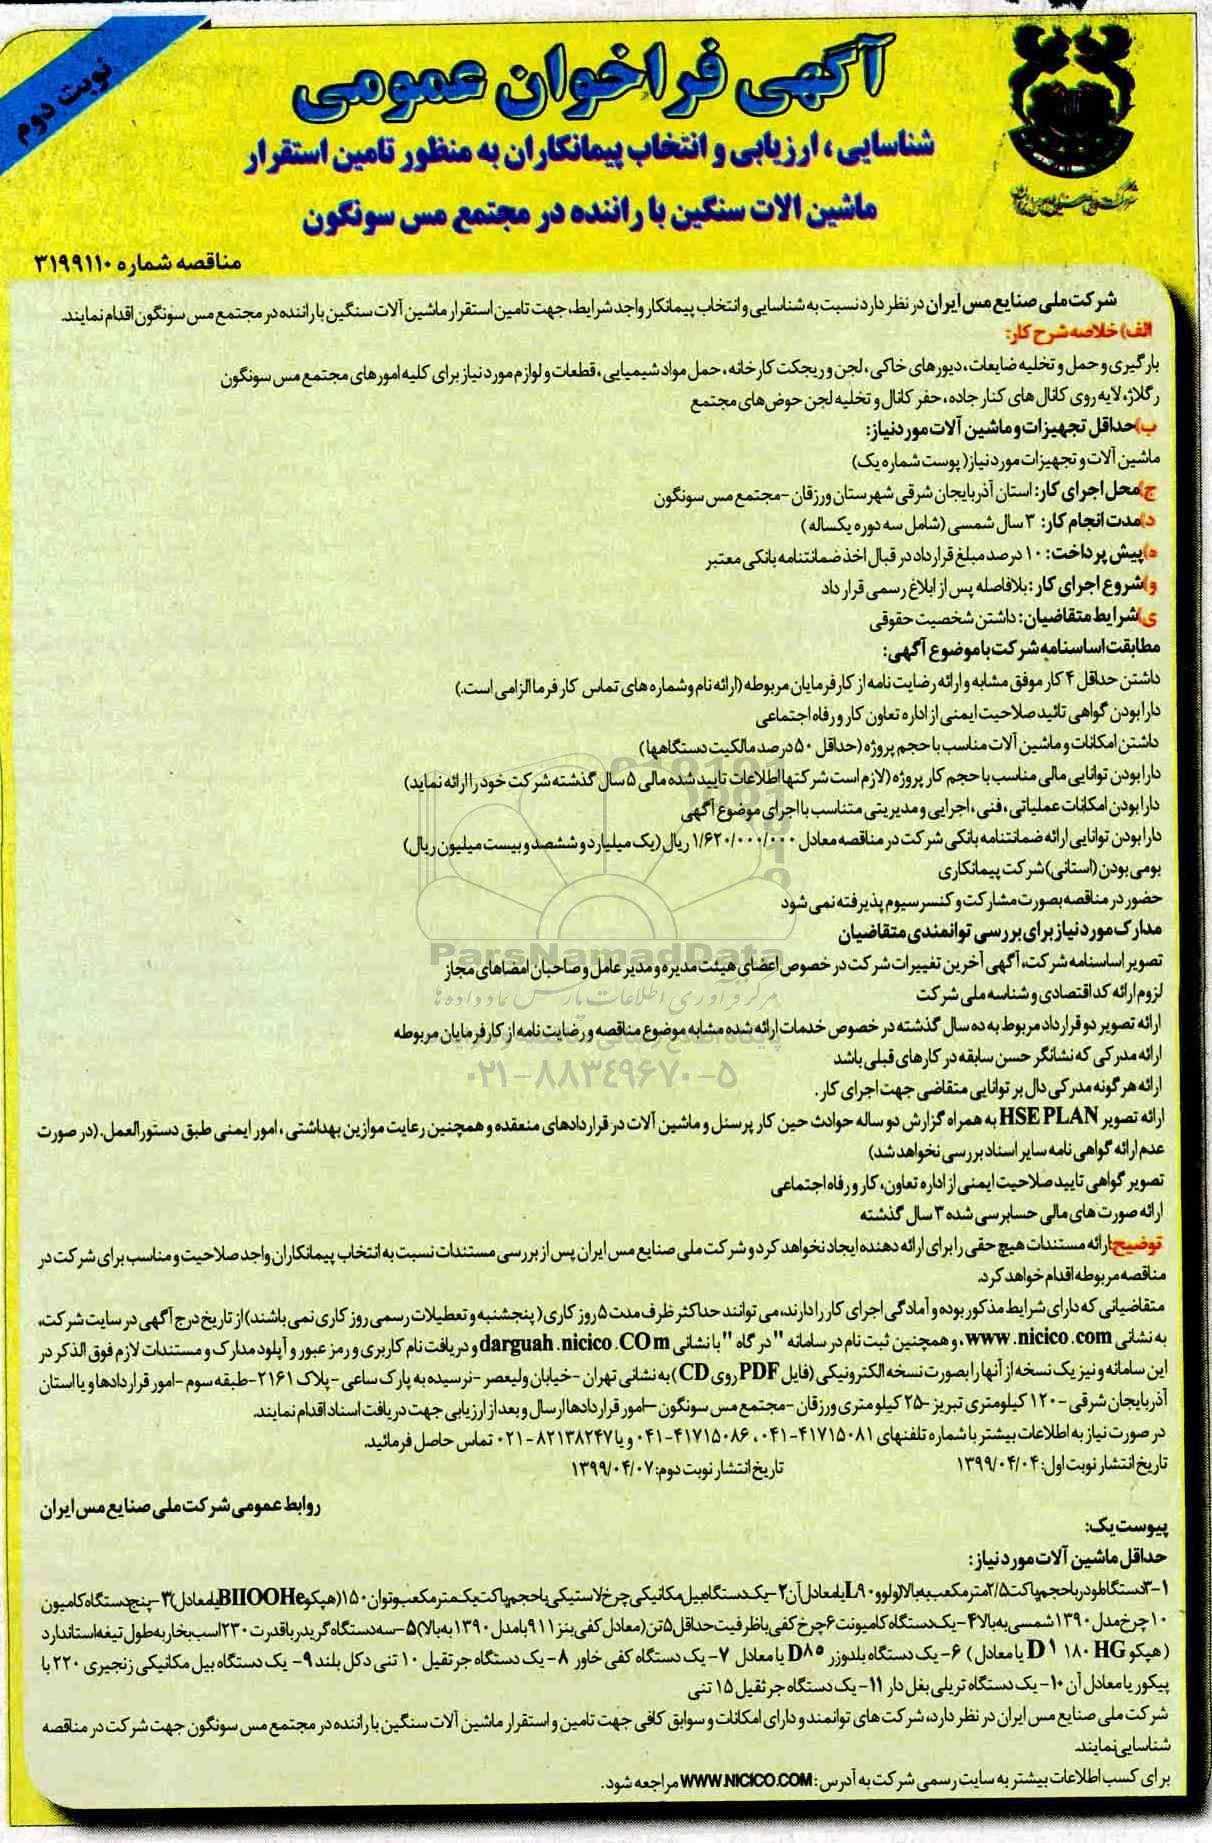 نوبت دوم
آگهی فراخوان عمومی
شناسایی، ارزیابی و انتخاب پیمانکاران به منظور تامین استقرار
ماشین الات سنگین با راننده در مجتمع مس سونگون
مناقصه شماره ۳۱۹۹۱۱۰
شرکت ملی صنایع مس ایران در نظر دارد نسبت به شناسایی و انتخاب پیمانکار واجد شرایط، جهت تامین استقرار ماشین آلات سنگین با راننده در مجتمع مس سونگون اقدام نمایند.
الف) خلاصه شرح کار:
بارگیری و حمل و تخلیه ضایعات، دپورهای خاکی، لجن و ریجکت کارخانه، حمل مواد شیمیایی، قطعات و لوازم مورد نیاز برای کلیه امورهای مجتمع مس سونگون
رگلاژ، لایه روی کانال های کنار جاده، حفر کانال و تخلیه لجن حوض های مجتمع
ب) حداقل تجهیزات و ماشین آلات مورد نیاز:
ماشین آلات و تجهیزات مورد نیاز (پوست شماره یک)
ج) محل اجرای کار: استان آذربایجان شرقی شهرستان ورزقان - مجتمع مس سونگون
د) مدت انجام کار: ۳ سال شمسی (شامل سه دوره یکساله)
ه) پیش پرداخت: ۱۰ درصد مبلغ قرارداد در قبال اخذ ضمانتنامه بانکی معتبر
و) شروع اجرای کار: بلافاصله پس از ابلاغ رسمی قرار داد
ی) شرایط متقاضیان: داشتن شخصیت حقوقی
مطابقت اساسنامه شرکت با موضوع آگهی:
داشتن حداقل ۴ کار موفق مشابه و ارائه رضایت نامه از کارفرمایان مربوطه (ارائه نام و شماره های تماس کارفرما الزامی است.)
دارا بودن گواهی تائید صلاحیت ایمنی از اداره تعاون کار و رفاه اجتماعی
داشتن امکانات و ماشین آلات مناسب با حجم پروژه (حداقل ۵۰ درصد مالکیت دستگاهها)
دارا بودن توانایی مالی مناسب با حجم کار پروژه (لازم است شرکتها اطلاعات تایید شده مالی ۵ سال گذشته شرکت خود را ارائه نماید)
دارا بودن امکانات عملیاتی، فنی، اجرایی و مدیریتی متناسب با اجرای موضوع آگهی
دارا بودن توانایی ارائه ضمانتنامه بانکی شرکت در مناقصه معادل ۱/۶۲۰/۰۰۰/۰۰۰ ریال (یک میلیارد و ششصد و بیست میلیون ریال)
بومی بودن (استانی) شرکت پیمانکاری
حضور در مناقصه بصورت مشارکت و کنسرسیوم پذیرفته نمی شود
مدارک مورد نیاز برای بررسی توانمندی متقاضیان
ParsNamadData
تصویر اساسنامه شرکت، آگهی آخرین تغییرات شرکت در خصوص اعضای هیئت مدیره و مدیر عامل و صاحبان امضاهای مجاز
لزوم ارائه کد اقتصادی و شناسه ملی شرکت
مرکز فرآوری اطلاعات پارس نماد داده ها
ارائه تصویر دو قرارداد مربوط به ده سال گذشته در خصوص خدمات ارائه شده مشابه موضوع مناقصه و رضایت نامه از کارفرمایان مربوطه
ارائه مدرکی که نشانگر حسن سابقه در کارهای قبلی باشد
۰۲۱-۸۸۳۴۹۶۷۰-۵
ارائه هر گونه مدرکی دال بر توانایی متقاضی جهت اجرای کار.
ارائه تصویر HSE PLAN به همراه گزارش دو ساله حوادث حین کار پرسنل و ماشین آلات در قراردادهای منعقده و همچنین رعایت موازین بهداشتی، امور ایمنی طبق دستورالعمل. (در صورت
عدم ارائه گواهی نامه سایر اسناد بررسی نخواهد شد)
تصویر گواهی تایید صلاحیت ایمنی از اداره تعاون، کار و رفاه اجتماعی
ارائه صورت های مالی حسابرسی شده ۳ سال گذشته
توضیح: ارائه مستندات هیچ حقی را برای ارائه دهنده ایجاد نخواهد کرد و شرکت ملی صنایع مس ایران پس از بررسی مستندات نسبت به انتخاب پیمانکاران واجد صلاحیت و مناسب برای شرکت در
مناقصه مربوطه اقدام خواهد کرد.
متقاضیانی که دارای شرایط مذکور بوده و آمادگی اجرای کار را دارند، می توانند حداکثر ظرف مدت ۵ روز کاری (پنجشنبه و تعطیلات رسمی روز کاری نمی باشند) از تاریخ درج آگهی در سایت شرکت،
به نشانی www.nicico.com، و همچنین ثبت نام در سامانه "درگاه" با نشانی darguah.nicico.COm و دریافت نام کاربری و رمز عبور و آپلود مدارک و مستندات لازم فوق الذکر در
این سامانه و نیز یک نسخه از آنها را بصورت نسخه الکترونیکی (فایل PDF روی CD) به نشانی تهران - خیابان ولیعصر - نرسیده به پارک ساعی - پلاک ۲۱۶۱ - طبقه سوم - امور قراردادها و یا استان
آذربایجان شرقی - ۱۲۰ کیلومتری تبریز - ۲۵ کیلومتری ورزقان - مجتمع مس سونگون - امور قراردادها ارسال و بعد از ارزیابی جهت دریافت اسناد اقدام نمایند.
در صورت نیاز به اطلاعات بیشتر با شماره تلفنهای ۴۱۷۱۵۰۸۱-۰۴۱، ۴۱۷۱۵۰۸۶-۰۴۱ و یا ۸۲۱۳۸۲۴۷-۰۲۱ تماس حاصل فرمائید.
تاریخ انتشار نوبت اول: ۱۳۹۹/۰۴/۰۴ تاریخ انتشار نوبت دوم: ۱۳۹۹/۰۴/۰۷
روابط عمومی شرکت ملی صنایع مس ایران
پیوست یک:
حداقل ماشین آلات مورد نیاز:
۱-۳ دستگاه لودر با حجم پاکت ۲/۵ متر مکعب به بالا (ولوو L۹۰ یا معادل آن ۲- یک دستگاه بیل مکانیکی چرخ لاستیکی با حجم پاکت یک متر مکعب و توان ۱۵۰ (هپکو BIIOOHe یا معادل) ۳- پنج دستگاه کامیون
۱۰ چرخ مدل ۱۳۹۰ شمسی به بالا ۴- یک دستگاه کامیونت ۶ چرخ کفی با ظرفیت حداقل ۵ تن (معادل کفی بنز ۹۱۱ با مدل ۱۳۹۰ به بالا) ۵- سه دستگاه گریدر با قدرت ۲۳۰ اسب بخار به طول تیغه استاندارد
(هپکو HG ۱۸۰ D۱ یا معادل) ۶- یک دستگاه بلدوزر D۸۵ یا معادل ۷- یک دستگاه کفی خاور ۸- یک دستگاه جرثقیل ۱۰ تنی دکل بلند ۹- یک دستگاه بیل مکانیکی زنجیری ۲۲۰ با
پیکور یا معادل آن ۱۰- یک دستگاه تریلی بغل دار ۱۱- یک دستگاه جرثقیل ۱۵ تنی
شرکت ملی صنایع مس ایران در نظر دارد، شرکت های توانمند و دارای امکانات و سوابق کافی جهت تامین و استقرار ماشین آلات سنگین با راننده در مجتمع مس سونگون جهت شرکت در مناقصه
شناسایی نمایند.
برای کسب اطلاعات بیشتر به سایت رسمی شرکت به آدرس: WWW.NICICO.COM مراجعه شود.